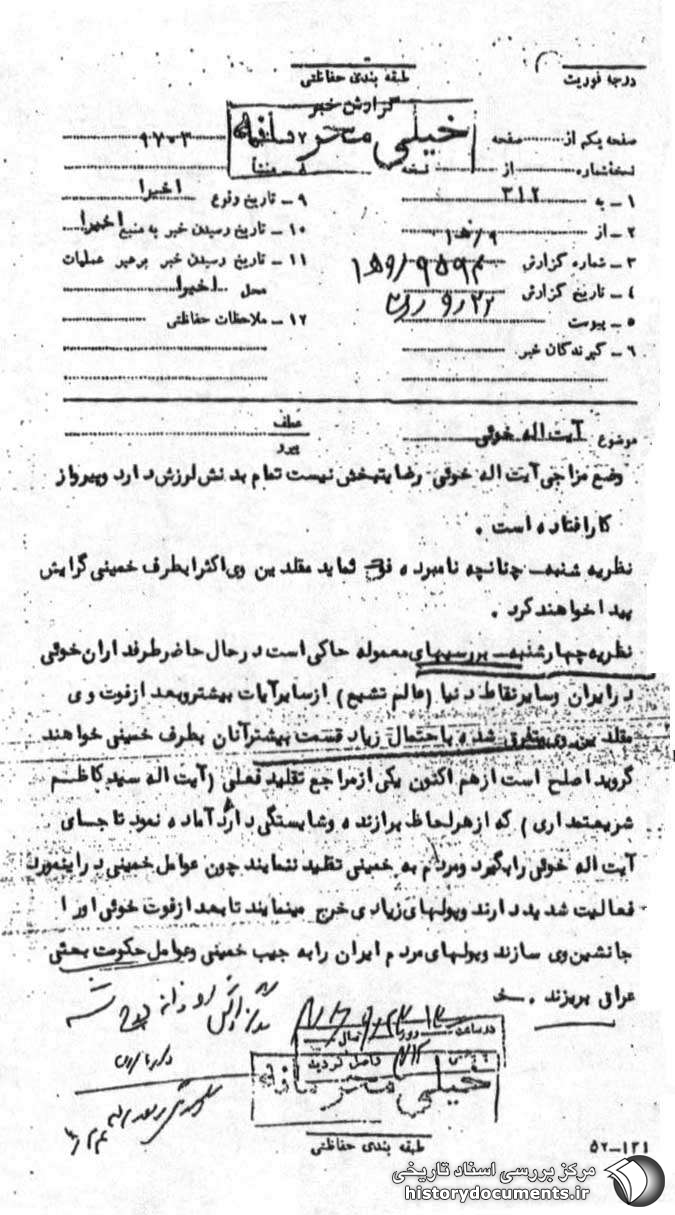 درجه فوریت
طبقه بندی حفاظتی
گزارش خبر
خیلی محرمانه
صفحه یکم از صفحه
نسخه شماره از نسخه
۱ـ به ۳۱۲
۲ـ از ۱۵/۹
۳ـ شماره گزارش
۴ـ تاریخ گزارش
۵ـ پیوست
۶ـ گیرندگان خبر
۸ـ منشأ
۹ـ تاریخ وقوع اخیرا
۱۰ـ تاریخ رسیدن خبر به منبع اخیرا
۱۱ـ تاریخ رسیدن خبر برهبر عملیات
محل اخیرا
۱۲ـ ملاحظات حفاظتی
موضوع آیت اله خوئی
عطف
پیرو
وضع مزاجی آیت اله خوئی رضایتبخش نیست تمام بدنش لرزش دارد و پیر و از
کار افتاده است .
نظریه شنبه ـ چنانچه نامبرده فوت نماید مقلدین وی اکثرا بطرف خمینی گرایش
پیدا خواهند کرد .
نظریه چهارشنبه ـ بررسیهای معموله حاکی است در حال حاضر طرفداران خوئی
در ایران و سایر نقاط دنیا (عالم تشیع) از سایر آیات بیشتر و بعد از فوت وی
مقلدین وی متفرق شده باحتمال زیاد قسمت بیشتر آنان بطرف خمینی خواهند
گروید اصلح است از هم اکنون یکی از مراجع تقلید فعلی (آیت اله سید کاظم
شریعتمداری) که از هر لحاظ برازنده و شایستگی دارد آماده نمود تا جای
آیت اله خوئی را بگیرد و مردم به خمینی تقلید ننمایند چون عوامل خمینی در اینمورد
فعالیت شدید دارند و پولهای زیادی خرج مینمایند تا بعد از فوت خوئی او را
جانشین وی سازند و پولهای مردم ایران را به جیب خمینی و عوامل حکومت بعثی
عراق بریزند .
در ساعت روز سال
واصل گردید
خیلی محرمانه
طبقه بندی حفاظتی
۵۲ـ۱۲۱
مرکز بررسی اسناد تاریخی
historydocuments.ir